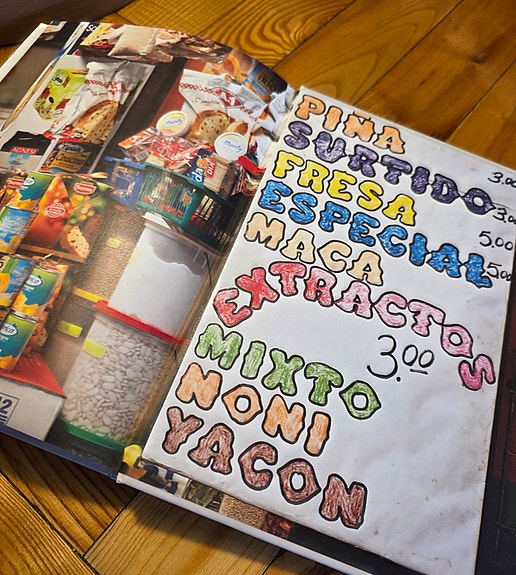 PIÑA
SURTIDO 3.00
FRESA 3.00
ESPECIAL 5.00
MACA 5.00
EXTRACTOS
3.00
MIXTO
NONI
YACON